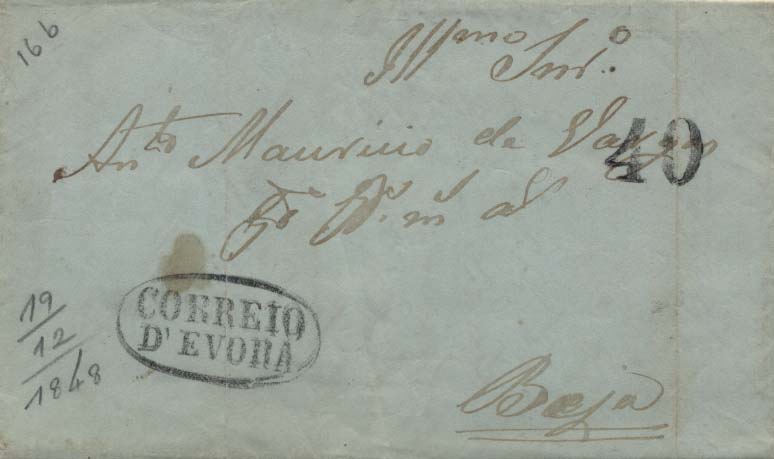 166
Illmo Snr.o
Anto Mauricio de Vargas
40
CORREIO
D'EVORA
19
12
1848
Beja